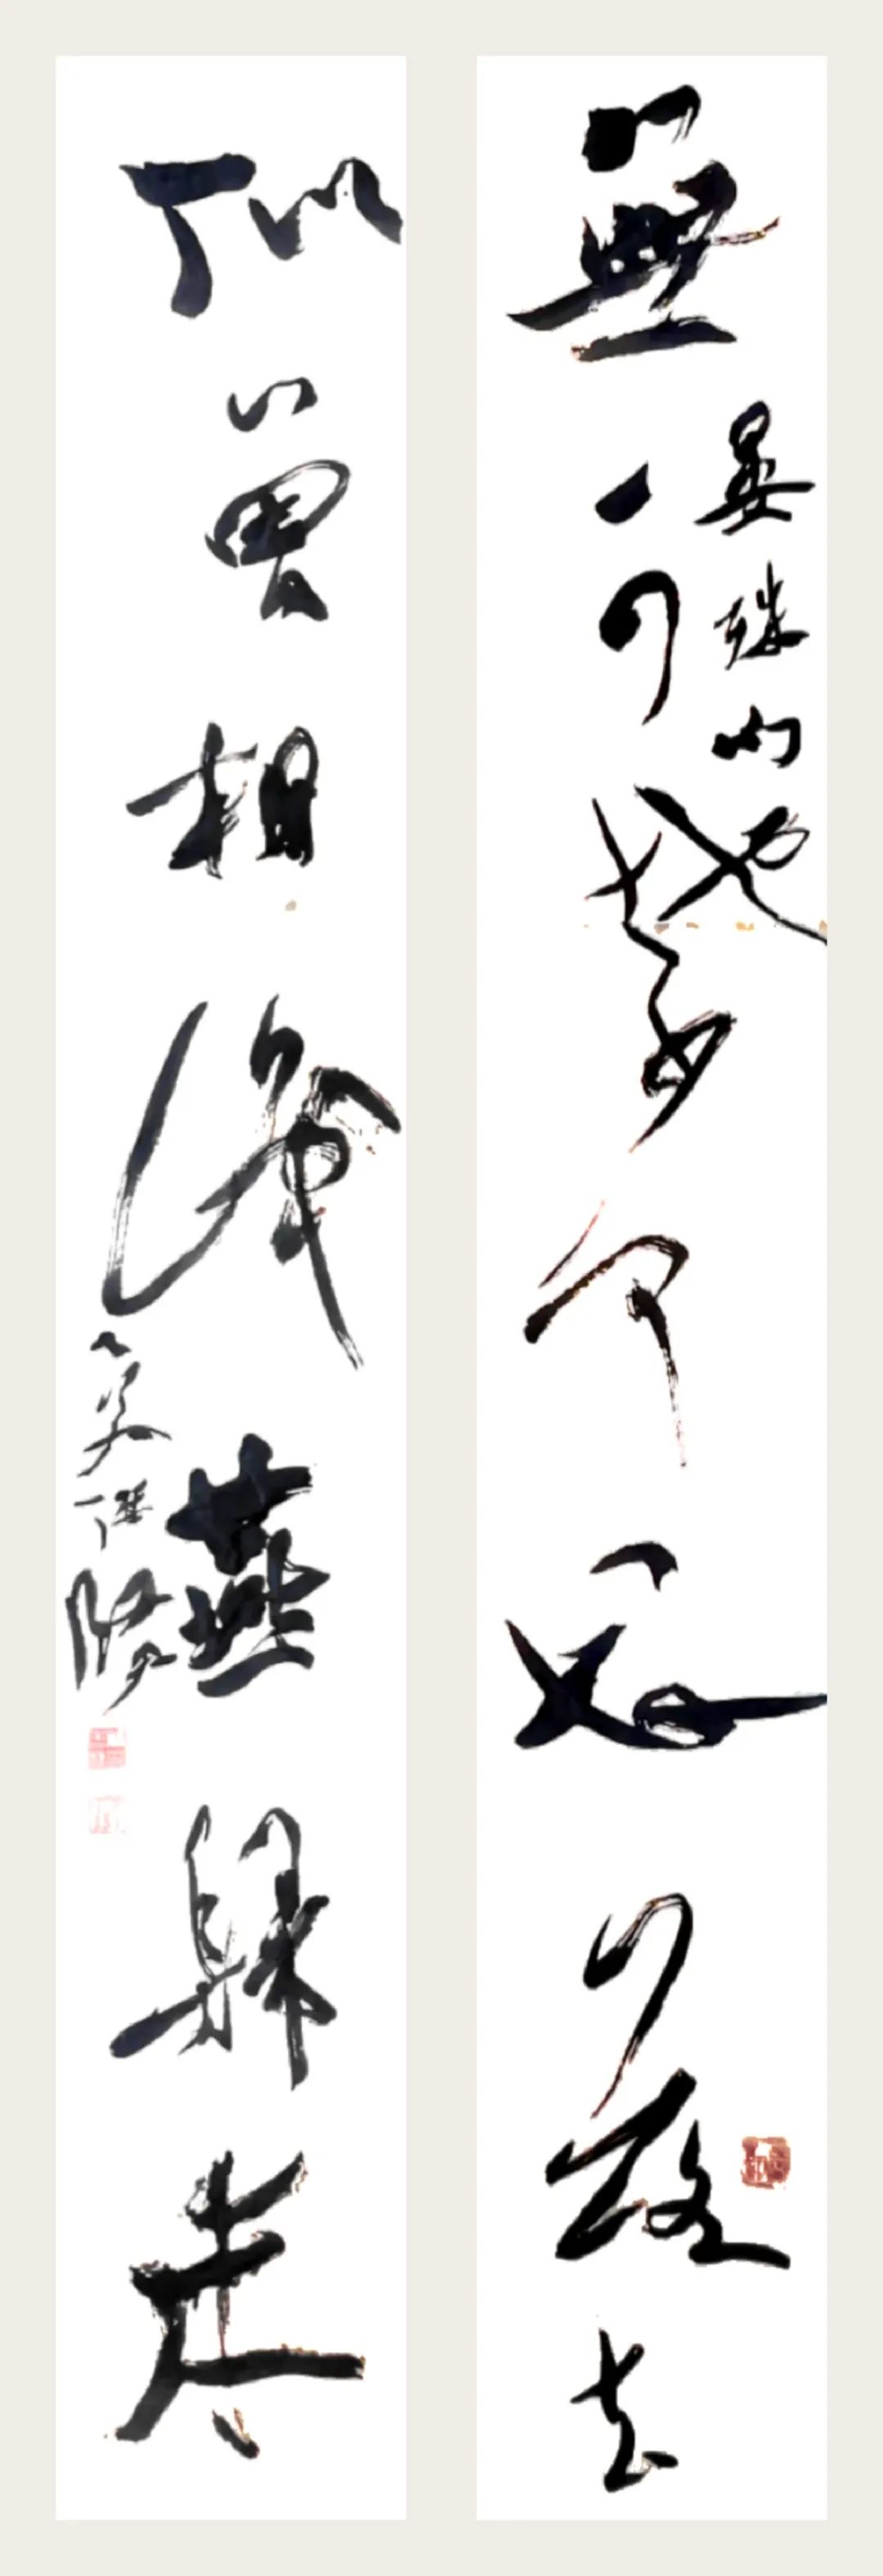 晏殊
無可奈何花落去
似曾相識燕歸來